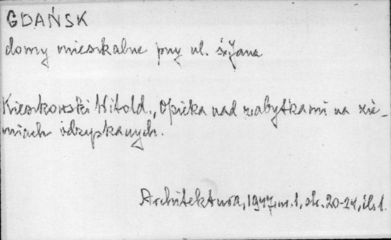 GDAŃSK
domy mieszkalne przy ul. św Jana
Kieszkowski Witold., Opieka nad zabytkami na zie-
miach odzyskanych.
Architektura, 1947, nr. 1, str. 20-24, ils 1